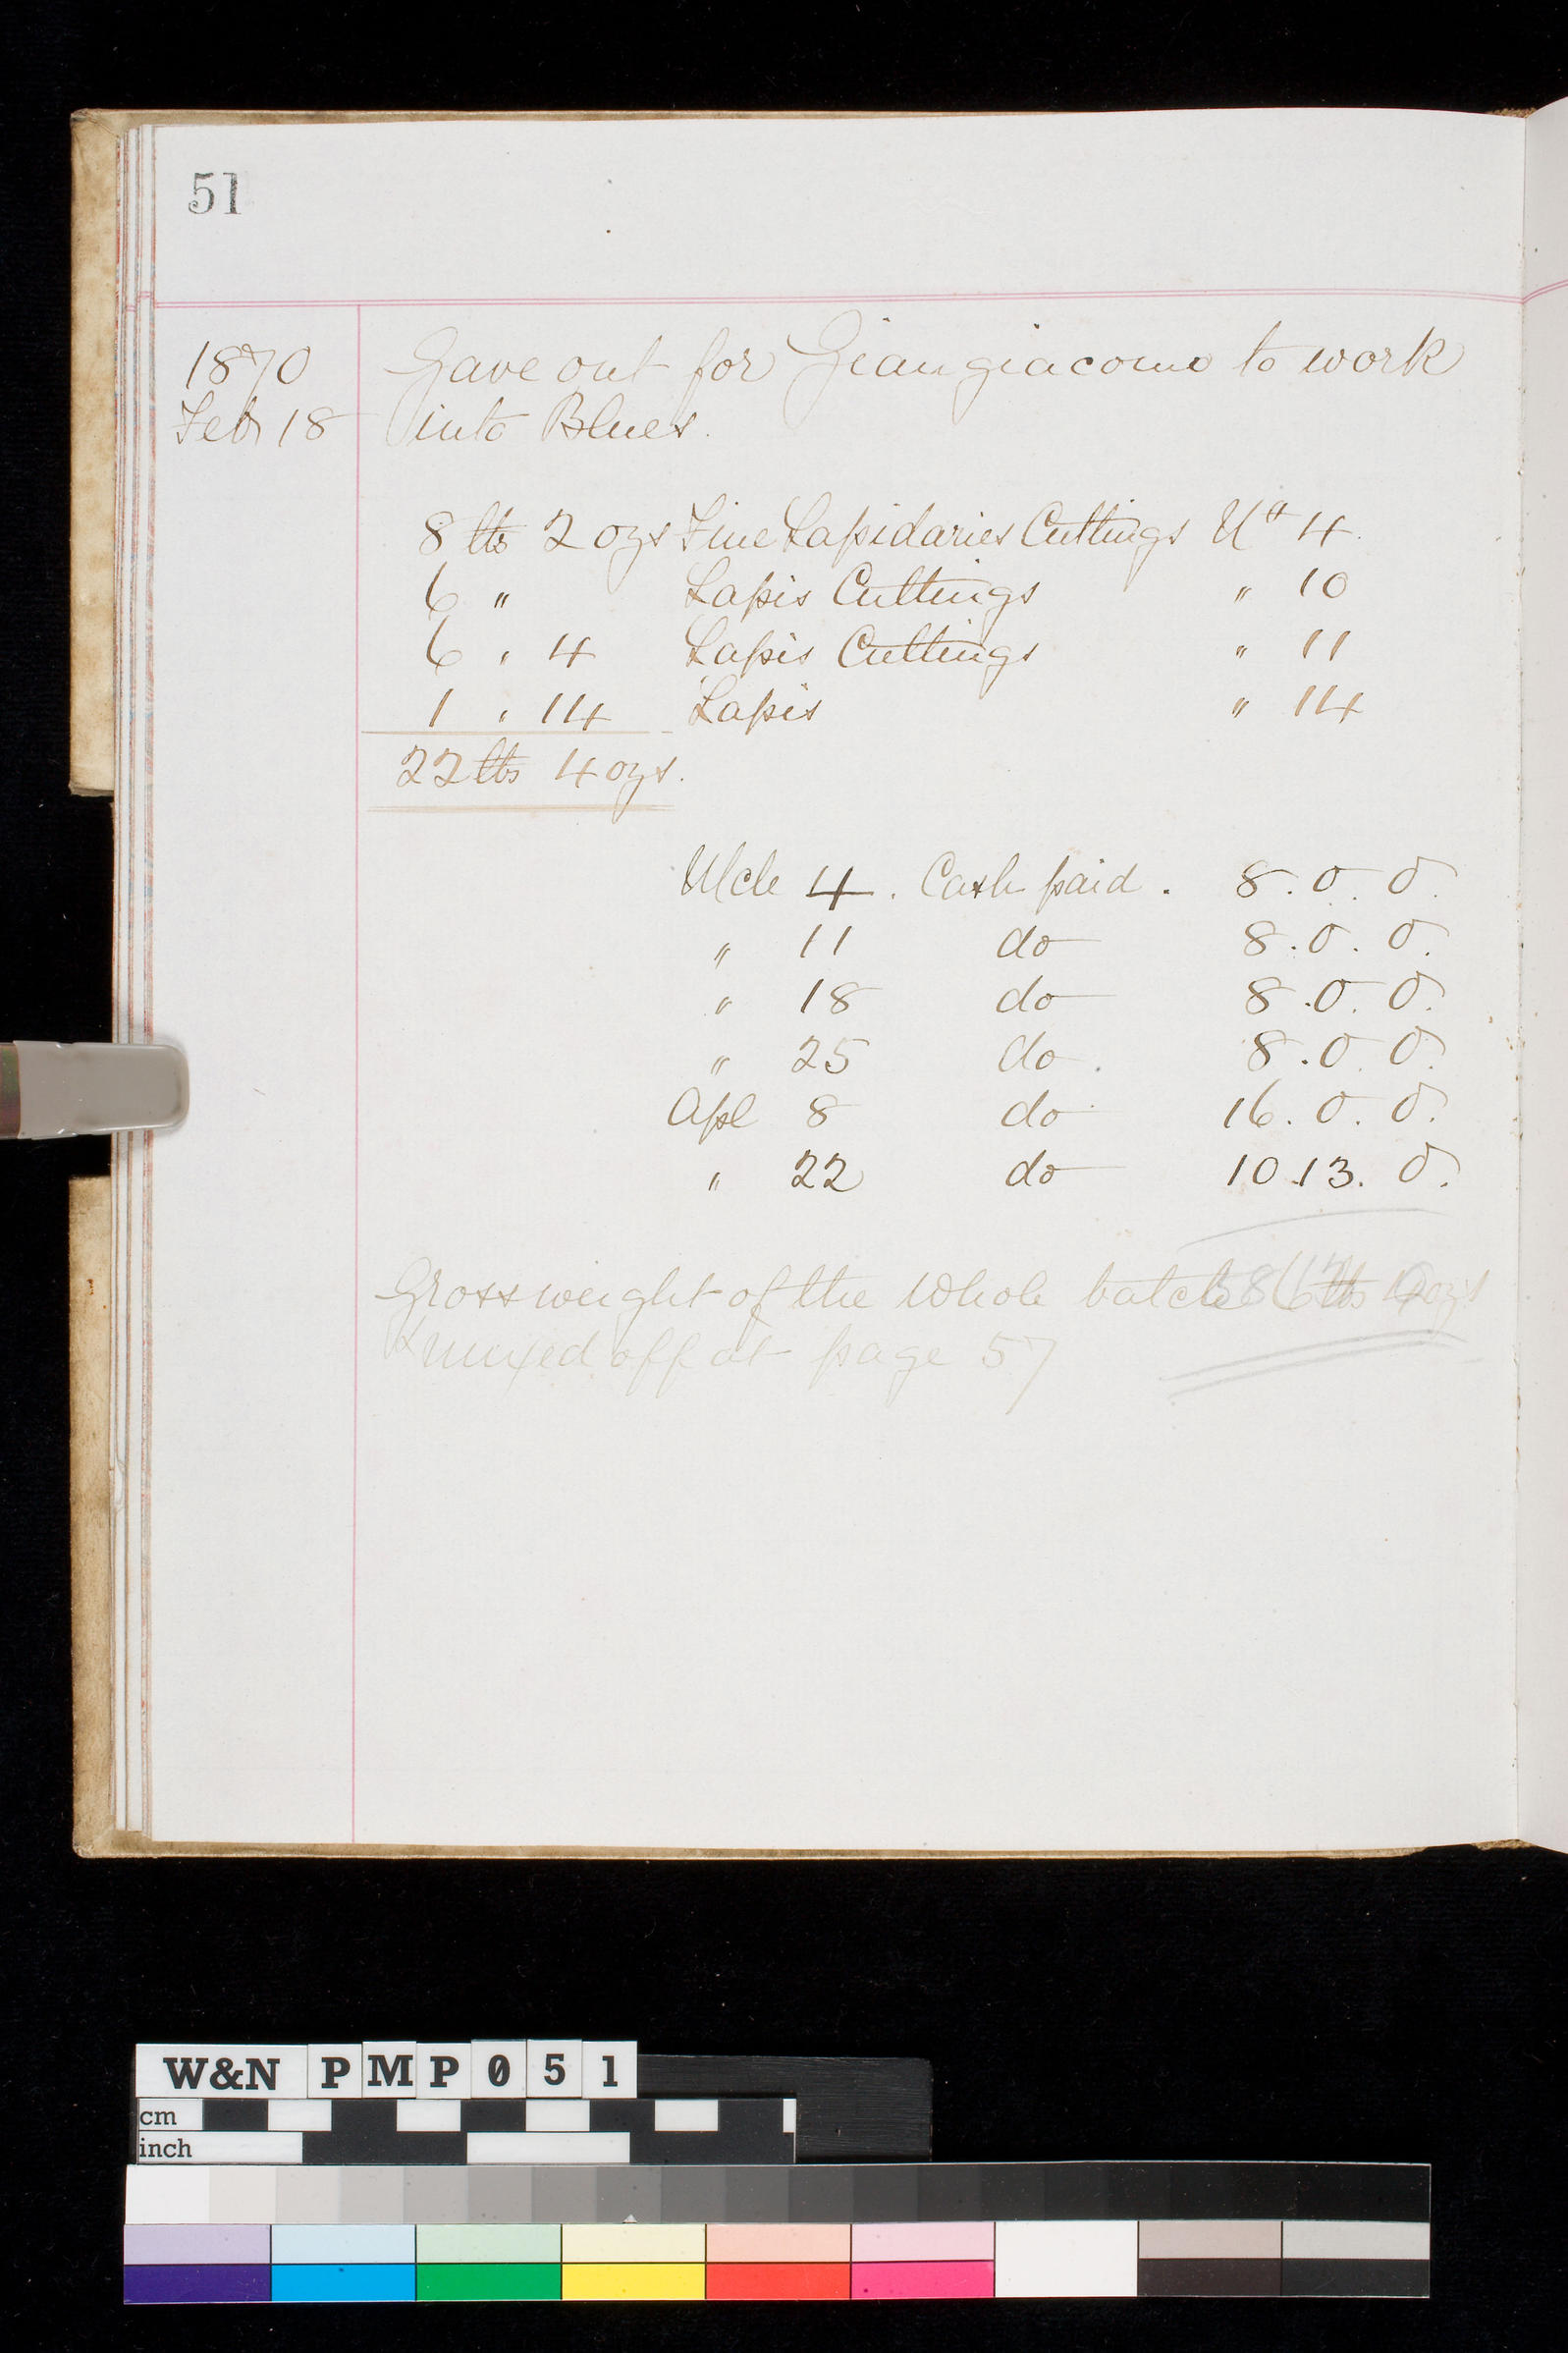 51
1870 Gave out for Giangiacomo to work
Feb 18 into Blues.
8 lbs 2 ozs Fine Lapidaries Cuttings Ua 4.
6 " Lapis Cuttings " 10
6 " 4 Lapis Cuttings " 11
1 " 14 Lapis " 14
22 lbs 4 ozs.
Mch 4. Cash paid. 8. 0. 0.
" 11 do 8. 0. 0.
" 18 do 8. 0. 0.
" 25 do. 8. 0. 0.
Apl 8 do 16. 0. 0.
" 22 do 10. 13. 0.
Gross weight of the Whole batch lbs ozs
& mixed off at page 57
W&N PMP051
cm
inch